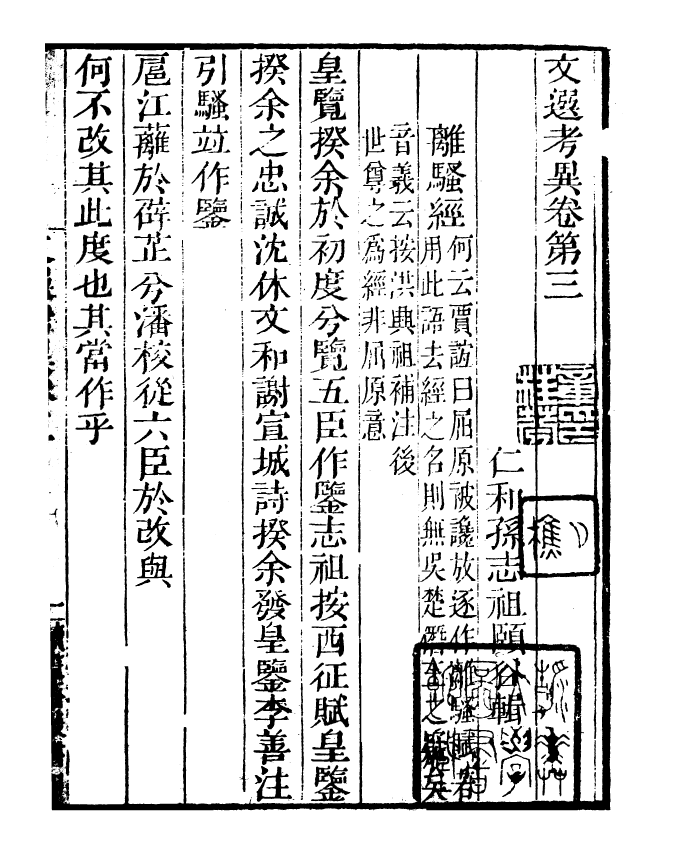 文選考異卷第三
仁和孫志祖頤谷輯
離騷經
何云賈誼曰屈原被讒放逐作離騷賦
用此語去經之名則無吳楚僭王之嫌矣
音義云按洪興祖補注後
世尊之爲經非屈原意
皇覽揆余於初度兮覽五臣作鑒志祖按西征賦皇鑒
揆余之忠誠沈休文和謝宣城詩揆余發皇鑒李善注
引騷竝作鑒
扈江蘺於薜芷兮潘校從六臣於改與
何不改其此度也其當作乎